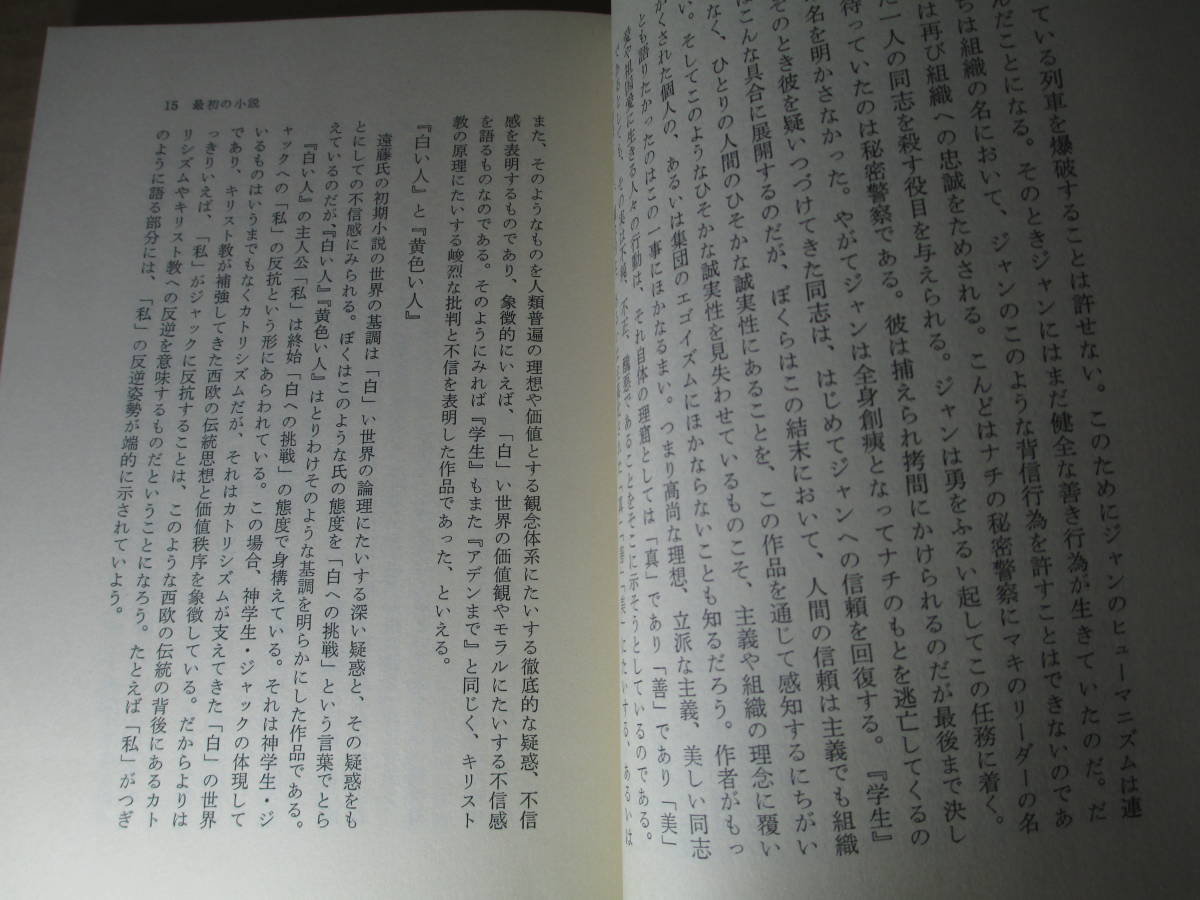 ている列車を爆破することは許せない。このためにジャンのヒューマニズムは連
んだことになる。そのときジャンにはまだ健全な善き行為が生きていたのだ。だ
ちは組織の名において、ジャンのこのような背信行為を許すことはできないのであ
は再び組織への忠誠をためされる。こんどはナチの秘密警察にマキのリーダーの名
た一人の同志を殺す役目を与えられる。ジャンは勇をふるい起してこの任務に着く。
待っていたのは秘密警察である。彼は捕えられ拷問にかけられるのだが最後まで決し
名を明かさなかった。やがてジャンは全身創痍となってナチのもとを逃亡してくるの
そのとき彼を疑いつづけてきた同志は、はじめてジャンへの信頼を回復する。『学生』
はこんな具合に展開するのだが、ぼくらはこの結末において、人間の信頼は主義でも組織
なく、ひとりの人間のひそかな誠実性にあることを、この作品を通じて感知するにちがい
い。そしてこのようなひそかな誠実性を見失わせているものこそ、主義や組織の理念に覆い
かくされた個人の、あるいは集団のエゴイズムにほかならないことも知るだろう。作者がもっ
とも語りたかったのはこの一事にほかなるまい。つまり高尚な理想、立派な主義、美しい同志
愛や祖国愛に生きる人々の行動は、それ自体の理窟としては「真」であり「善」であり「美」
であることをそこに示そうとしているのである。
15 最初の小説
また、そのようなものを人類普遍の理想や価値とする観念体系にたいする徹底的な疑惑、不信
感を表明するものであり、象徴的にいえば、「白」い世界の価値観やモラルにたいする不信感
を語るものなのである。そのようにみれば『学生』もまた『アデンまで』と同じく、キリスト
教の原理にたいする峻烈な批判と不信を表明した作品であった、といえる。
『白い人』と『黄色い人』
遠藤氏の初期小説の世界の基調は「白」い世界の論理にたいする深い疑惑と、その疑惑をも
とにしての不信感にみられる。ぼくはこのような氏の態度を「白への挑戦」という言葉でとら
えているのだが、『白い人』『黄色い人』はとりわけそのような基調を明らかにした作品である。
『白い人』の主人公「私」は終始「白への挑戦」の態度で身構えている。それは神学生・ジ
ャックへの「私」の反抗という形にあらわれている。この場合、神学生・ジャックの体現して
いるものはいうまでもなくカトリシズムだが、それはカトリシズムが支えてきた「白」の世界
であり、キリスト教が補強してきた西欧の伝統思想と価値秩序を象徴している。だからよりは
っきりいえば、「私」がジャックに反抗することは、このような西欧の伝統の背後にあるカト
リシズムやキリスト教への反逆を意味するものだということになろう。たとえば「私」がつぎ
のように語る部分には、「私」の反逆姿勢が端的に示されていよう。